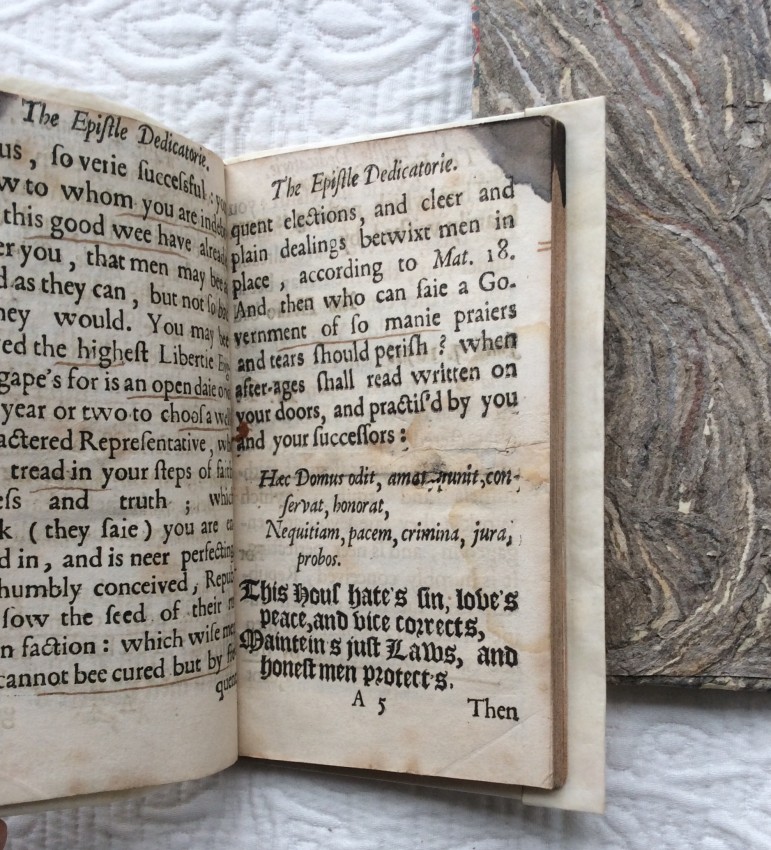 The Epiſtle Dedicatorie.
us, ſo verie ſucceſsful:
w to whom you are
this good wee have
er you, that men may bee
d as they can, but not ſo
ney would. You may
ed the higheſt Libertie
gape's for is an open daie
year or two to chooſ a
actered Repreſentative,
tread in your ſteps of
eſs and truth;
k (they ſaie) you are
d in, and is neer perfecting
humbly conceived,
ſow the ſeed of their
n faction: which wiſe
cannot bee cured but by
quent
The Epiſtle Dedicatorie.
quent elections, and cleer and
plain dealings betwixt men in
place, according to Mat. 18.
And then who can ſaie a Go-
vernment of ſo manie praiers
and tears ſhould periſh? when
after-ages ſhall read written on
your doors, and practiſ'd by you
and your ſucceſſors:
Hæc Domus odit, amat, punit, con-
ſervat, honorat,
Nequitiam, pacem, crimina, jura,
probos.
This Houſ hate's ſin, love's
peace, and vice corrects,
Maintein's juſt Laws, and
honeſt men protect's.
A 5 Then